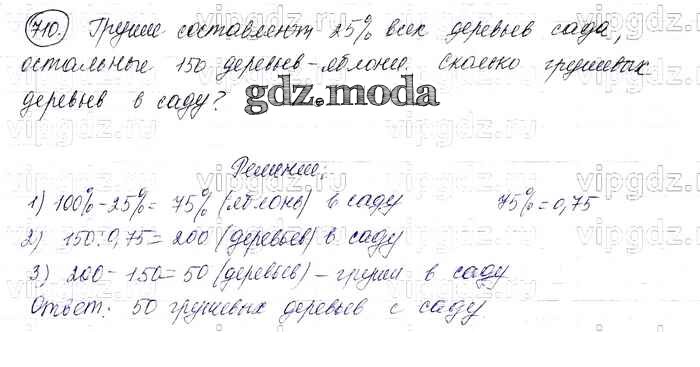 710. Груши составляют 25% всех деревьев сада,
остальные 150 деревьев - яблони. Сколько грушевых
деревьев в саду?
gdz.moda
Решение:
1) 100% - 25% = 75% (яблонь) в саду 75% = 0,75
2) 150 : 0,75 = 200 (деревьев) в саду
3) 200 - 150 = 50 (деревьев) - груши в саду
Ответ: 50 грушевых деревьев с саду.
vipgdz.ru